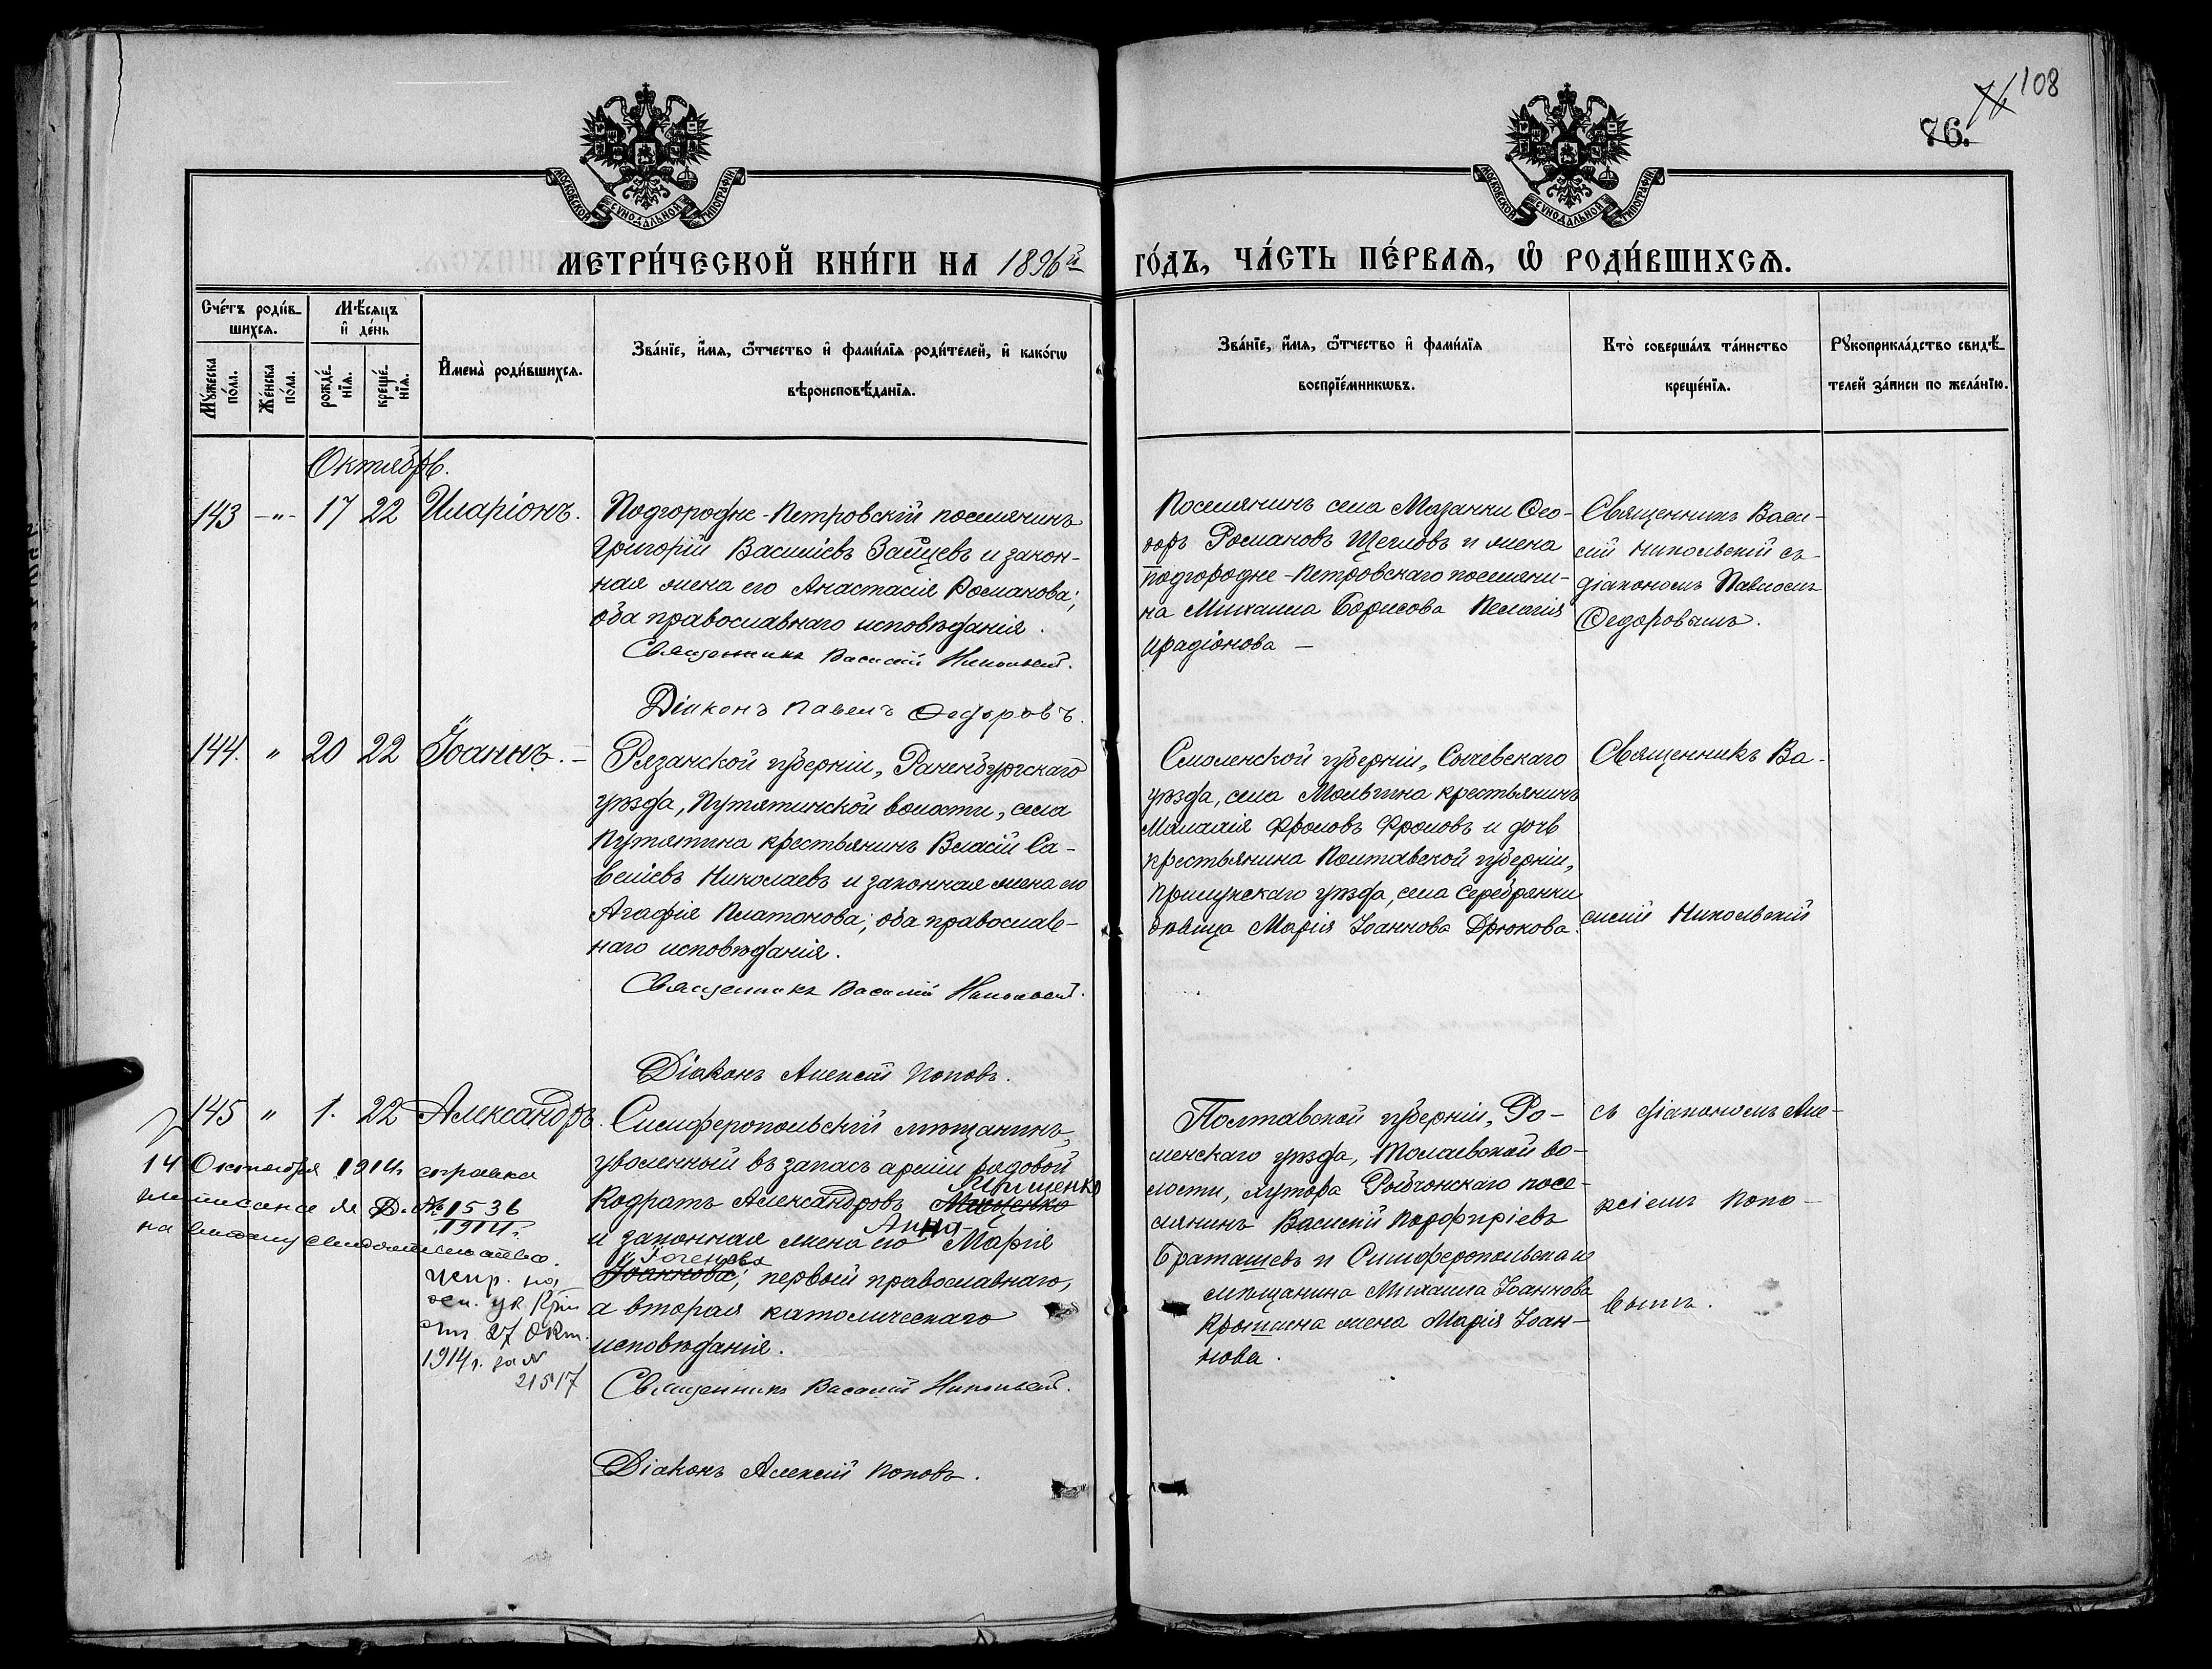 108
76
76.
МОСКОВСКОЙ СѴНОДАЛЬНОЙ ТИПОГРАФІИ
МОСКОВСКОЙ СѴНОДАЛЬНОЙ ТИПОГРАФІИ
МЕТРИ́ЧЕСКОЙ КНИ́ГИ НА 1896й
ГО́ДЪ, ЧА́СТЬ ПЕ́РВАѦ, Ѽ РОДИ́ВШИХСѦ.
Сче́тъ роди́в-
шихсѧ.
Мꙋ́жеска по́ла.
Же́нска по́ла.
Мѣ́сѧцъ
и҆ де́нь
рожде́-
нїѧ.
креще́-
нїѧ.
И҆мена̀ роди́вшихсѧ.
Зва́нїе, и҆́мѧ, ѻ҆́тчество и҆ фами́лїѧ роди́телей, и҆ како́гѡ
вѣроисповѣ́данїѧ.
Зва́нїе, и҆́мѧ, ѻ҆́тчество и҆ фами́лїѧ
воспрїе́мникѡвъ.
Кто̀ соверша́лъ та́инство
креще́нїѧ.
Рꙋкоприкла́дство свидѣ́-
телей за́писи по жела́нїю.
Октябрь.
143 -"- 17 22 Иларіонъ.
Подгородне-Петровскій поселянинъ
Григорій Василіевъ Зайцевъ и закон-
ная жена его Анастасія Романова;
оба православнаго исповѣданія.
Священникъ Василій Никольскій.
Діаконъ Павелъ Ѳедоровъ.
Поселянинъ села Мазанки Ѳео-
доръ Романовъ Щегловъ и жена
подгородне-Петровскаго поселяни-
на Михаила Борисова Пелагія
Ирадіонова —
Священникъ Васи-
лій Никольскій съ
діакономъ Павломъ
Ѳедоровымъ.
144. " 20 22 Іоаннъ. —
Рязанской губерніи, Раненбургскаго
уѣзда, Путятинской волости, села
Путятина крестьянинъ Власій Са-
веліевъ Николаевъ и законная жена его
Агафія Платонова; оба православ-
наго исповѣданія.
Священникъ Василій Никольскій.
Діаконъ Алексій Поповъ.
Смоленской губерніи, Сычевскаго
уѣзда, села крестьянинъ
Малахія Фроловъ Фроловъ и дочь
крестьянина Полтавской губерніи,
Прилукскаго уѣзда, села Серебрянки
дѣвица Марія Іоаннова Дрюкова.
Священникъ Ва-
силій Никольскій
145 " 1. 22 Александръ.
Симферопольскій мѣщанинъ,
уволенный въ запасъ арміи рядовой
Кодратъ Александровъ Мищенко
и законная жена его Анна-Марія
Іоаннова; первый православнаго,
а вторая католическаго
исповѣданія.
Священникъ Василій Никольскій.
Діаконъ Алексій Поповъ.
Полтавской губерніи, Ро-
менскаго уѣзда, во-
лости, хутора посе-
лянинъ Василій Порфиріевъ
Браташевъ и Симферопольскаго
мѣщанина Михаила Іоаннова
жена Марія Іоан-
нова.
съ діакономъ Але-
ксіемъ Попо-
вымъ.
14 Октября 1914г справка
№ 1536
1914 г.
на свидѣтельство.
Испр. на
осн. ук.
27 Окт.
1914 г. за №
21517